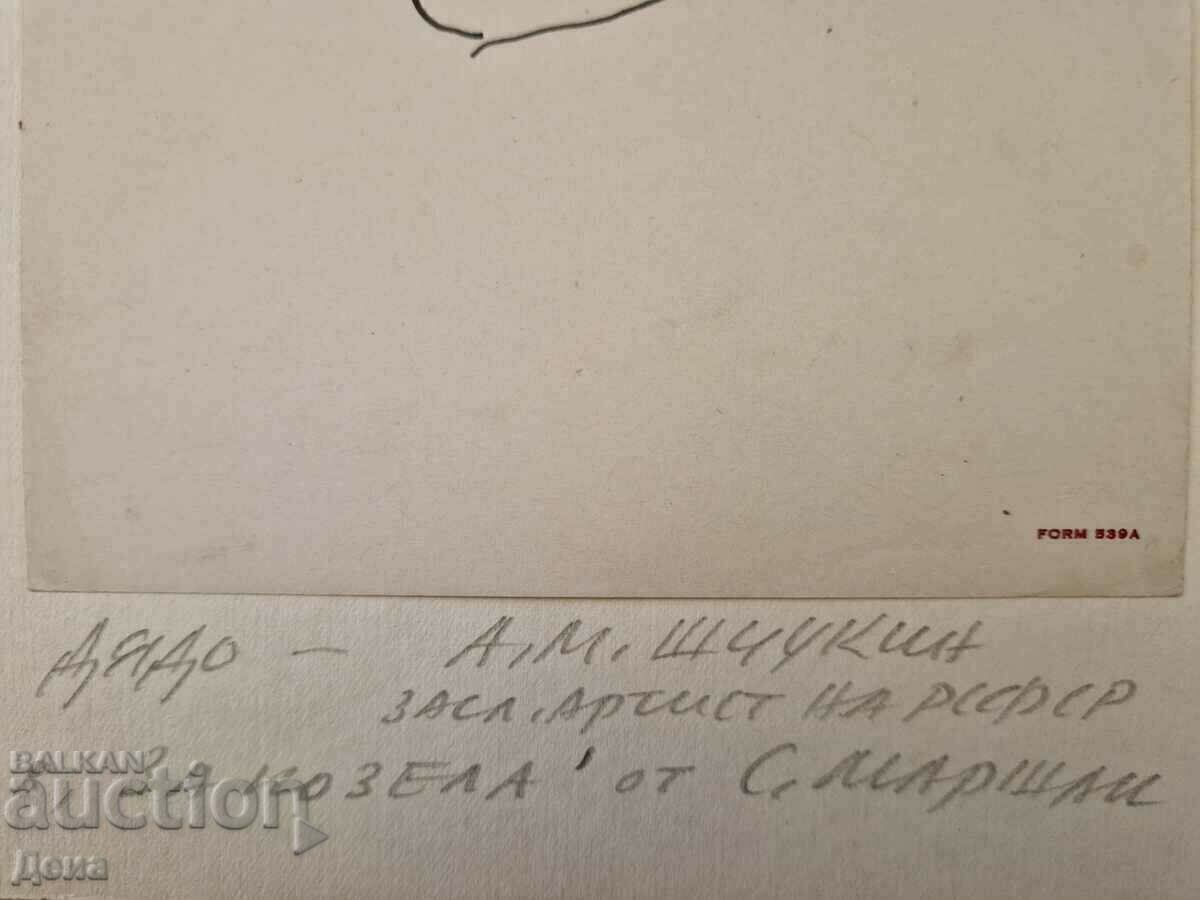 FORM 539A
ДЯДО – А.М. ЩЧУКИН
ЗАСЛ. АРТИСТ НА РСФСР
„За козела" от С. Маршак
BALKAN
auction
Деиа